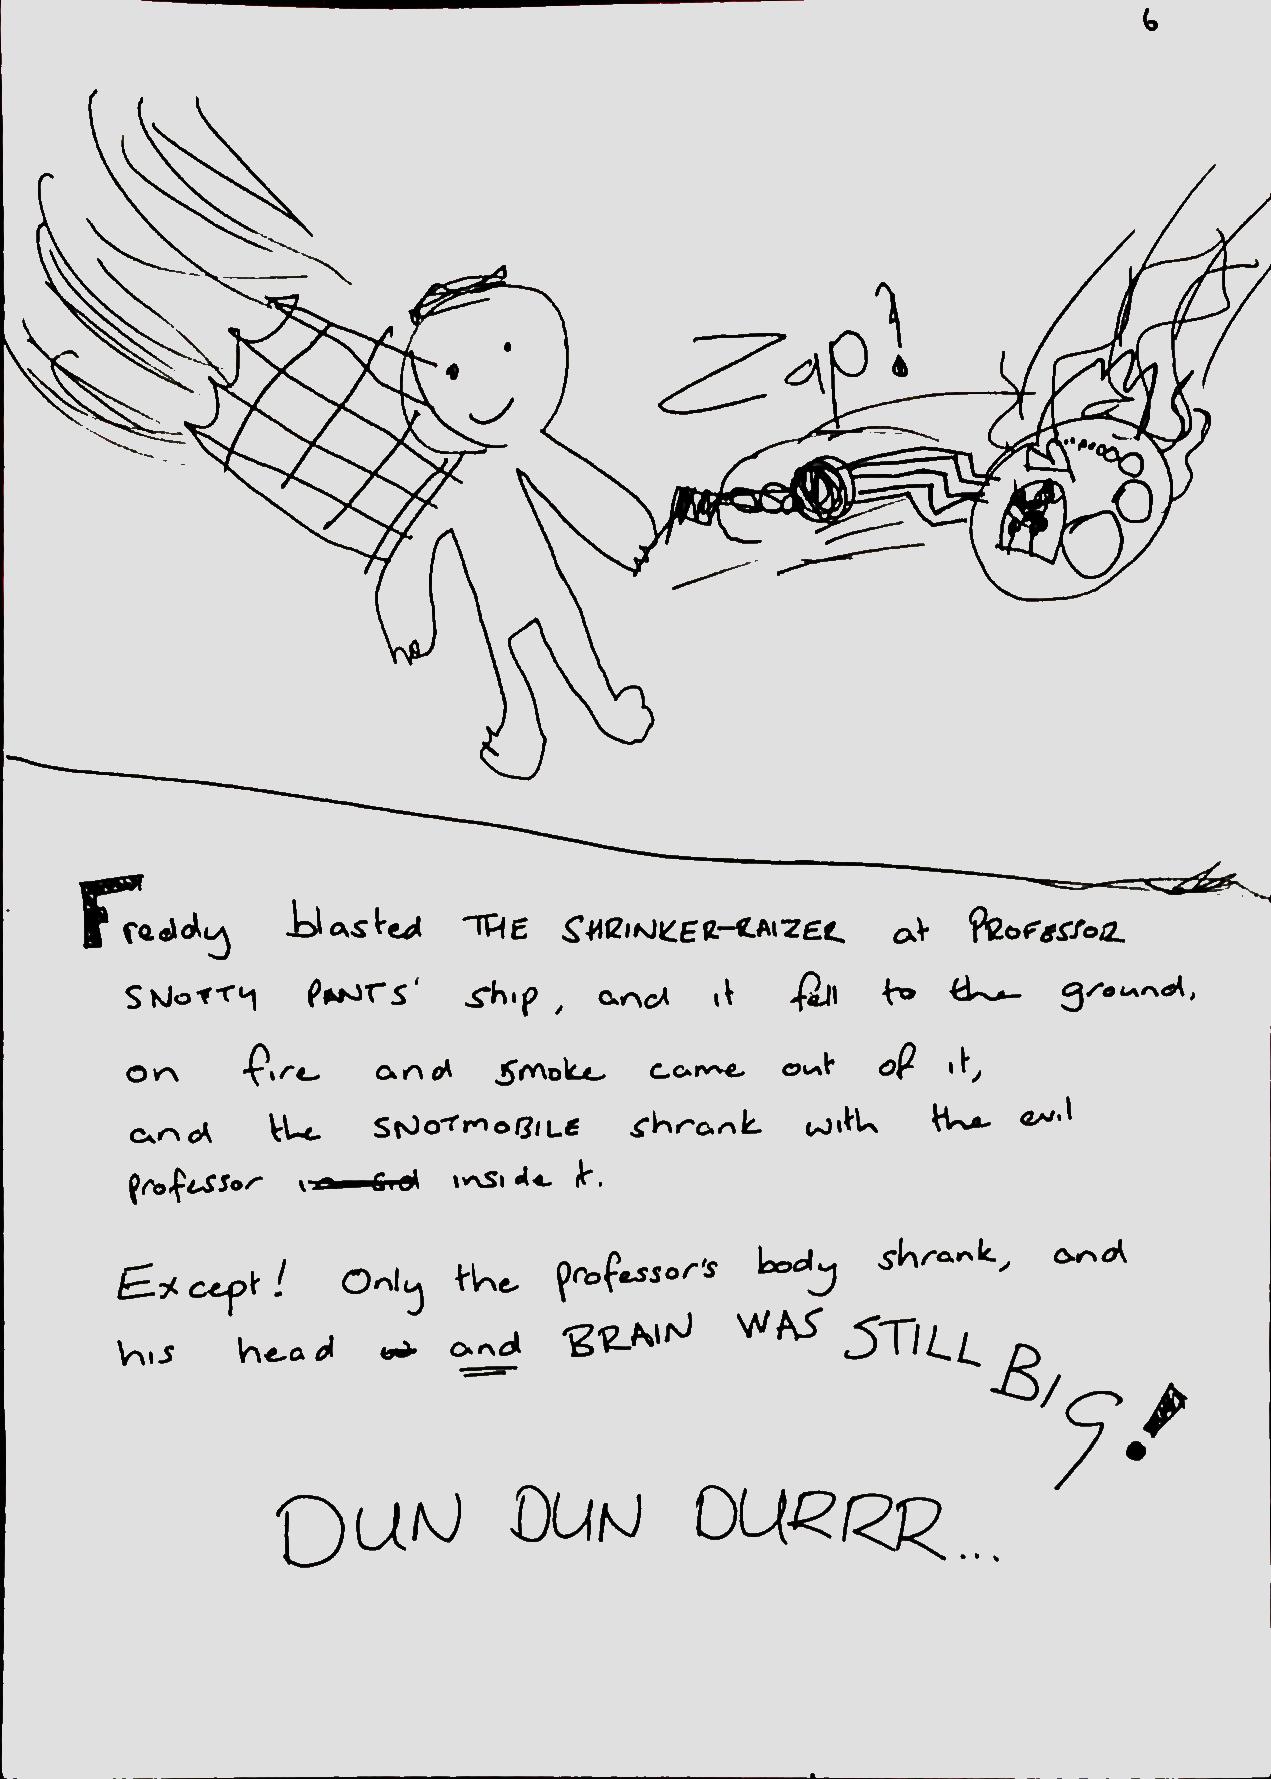 6
Zap!
Freddy blasted THE SHRINKER-RAIZER at PROFESSOR
SNOTTY PANTS' ship, and it fell to the ground,
on fire and smoke came out of it,
and the SNOTMOBILE shrank with the evil
professor inside it.
Except! Only the professor's body shrank, and
his head and BRAIN WAS STILL BIG!
DUN DUN DURRR...